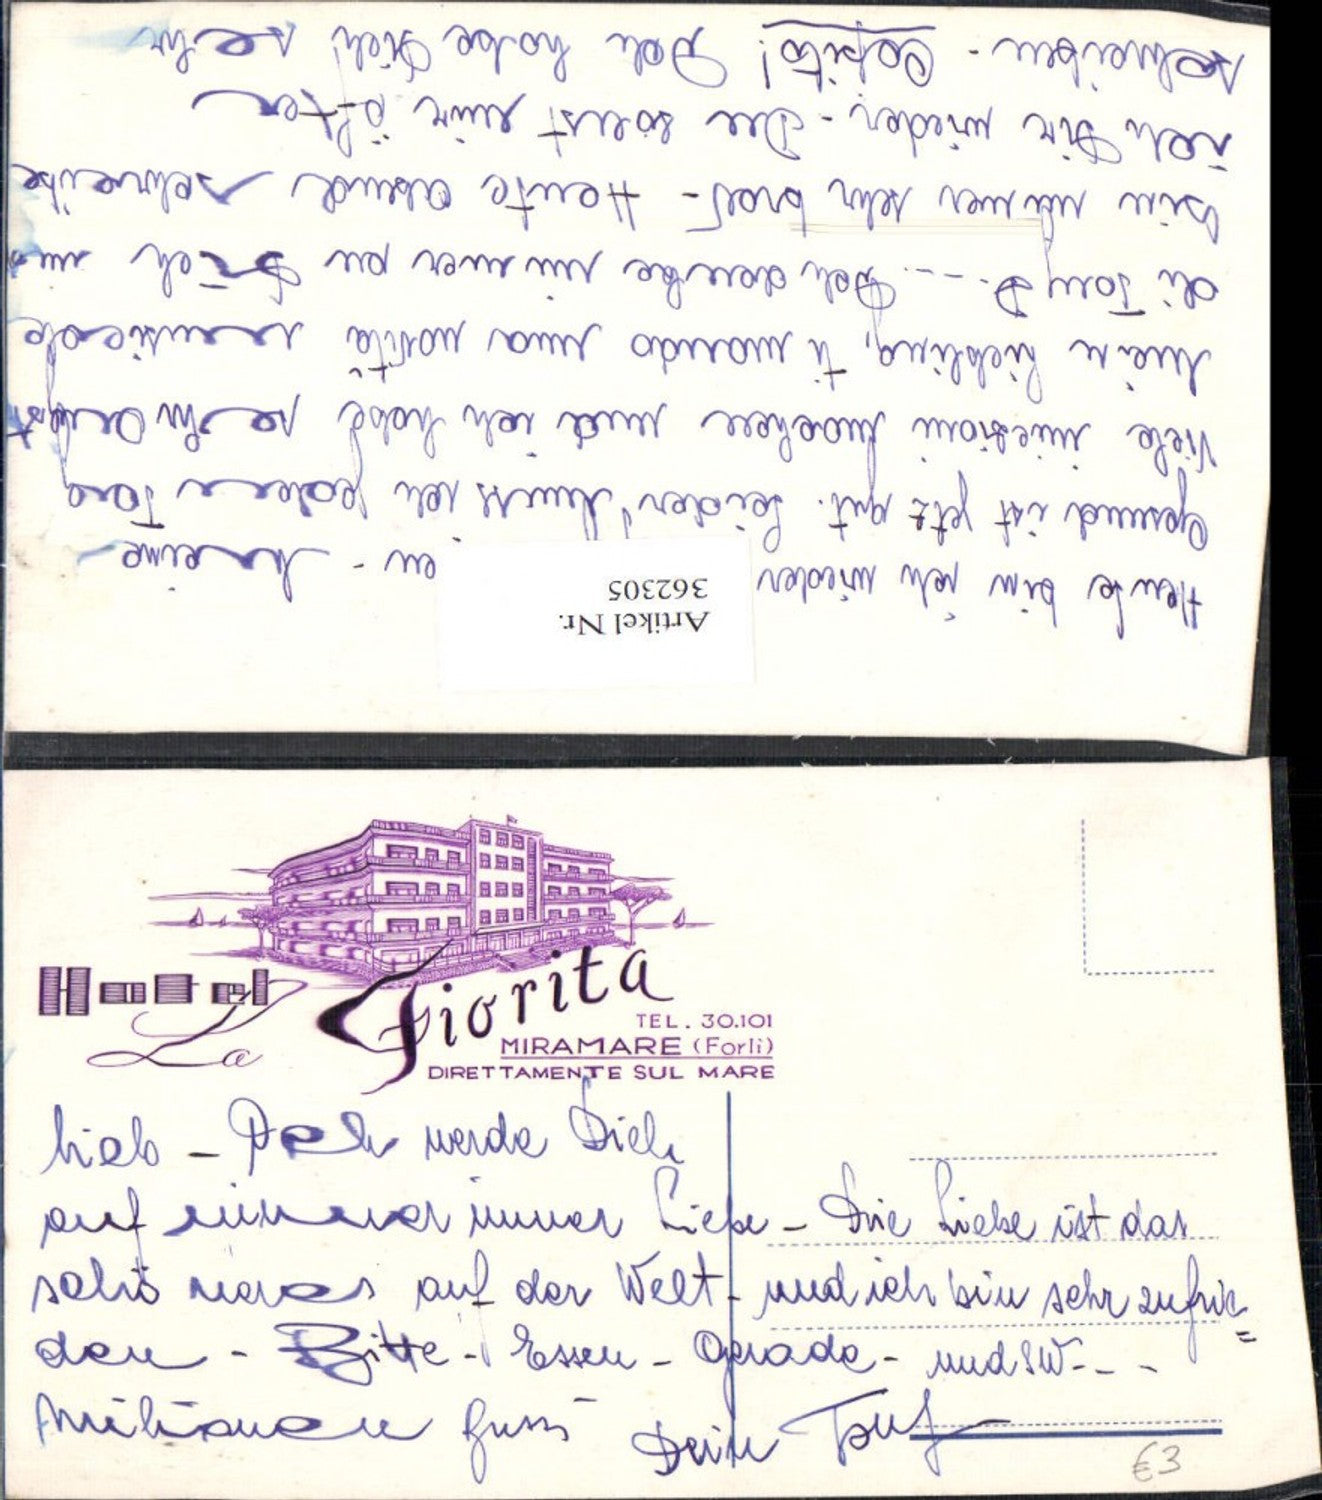 Heute bin ich wieder en - Meine
Gesund ist jetz gut. Leider muss ich jeden Tag
viele iniezioni machen und ich habe sehr Angst
Mein Liebling, ti mando una novità musicale
di Tony D. ... Ich denke immer zu Dich und
bin immer sehr brav - Heute abend schreibe
ich Dir wieder - Du sollst mir öfter
schreiben - Capito! Ich habe Dich sehr
Artikel Nr.
362305
Hotel
La Fiorita
TEL. 30.101
MIRAMARE (Forlì)
DIRETTAMENTE SUL MARE
lieb - Ich werde Dich
auf immer immer Liebe - Die Liebe ist das
schö neres auf der Welt - und ich bin sehr zufrie=
den - Bitte - Essen - Gerade - und SW - - -
Milionen Bussi Dein Tony
€3